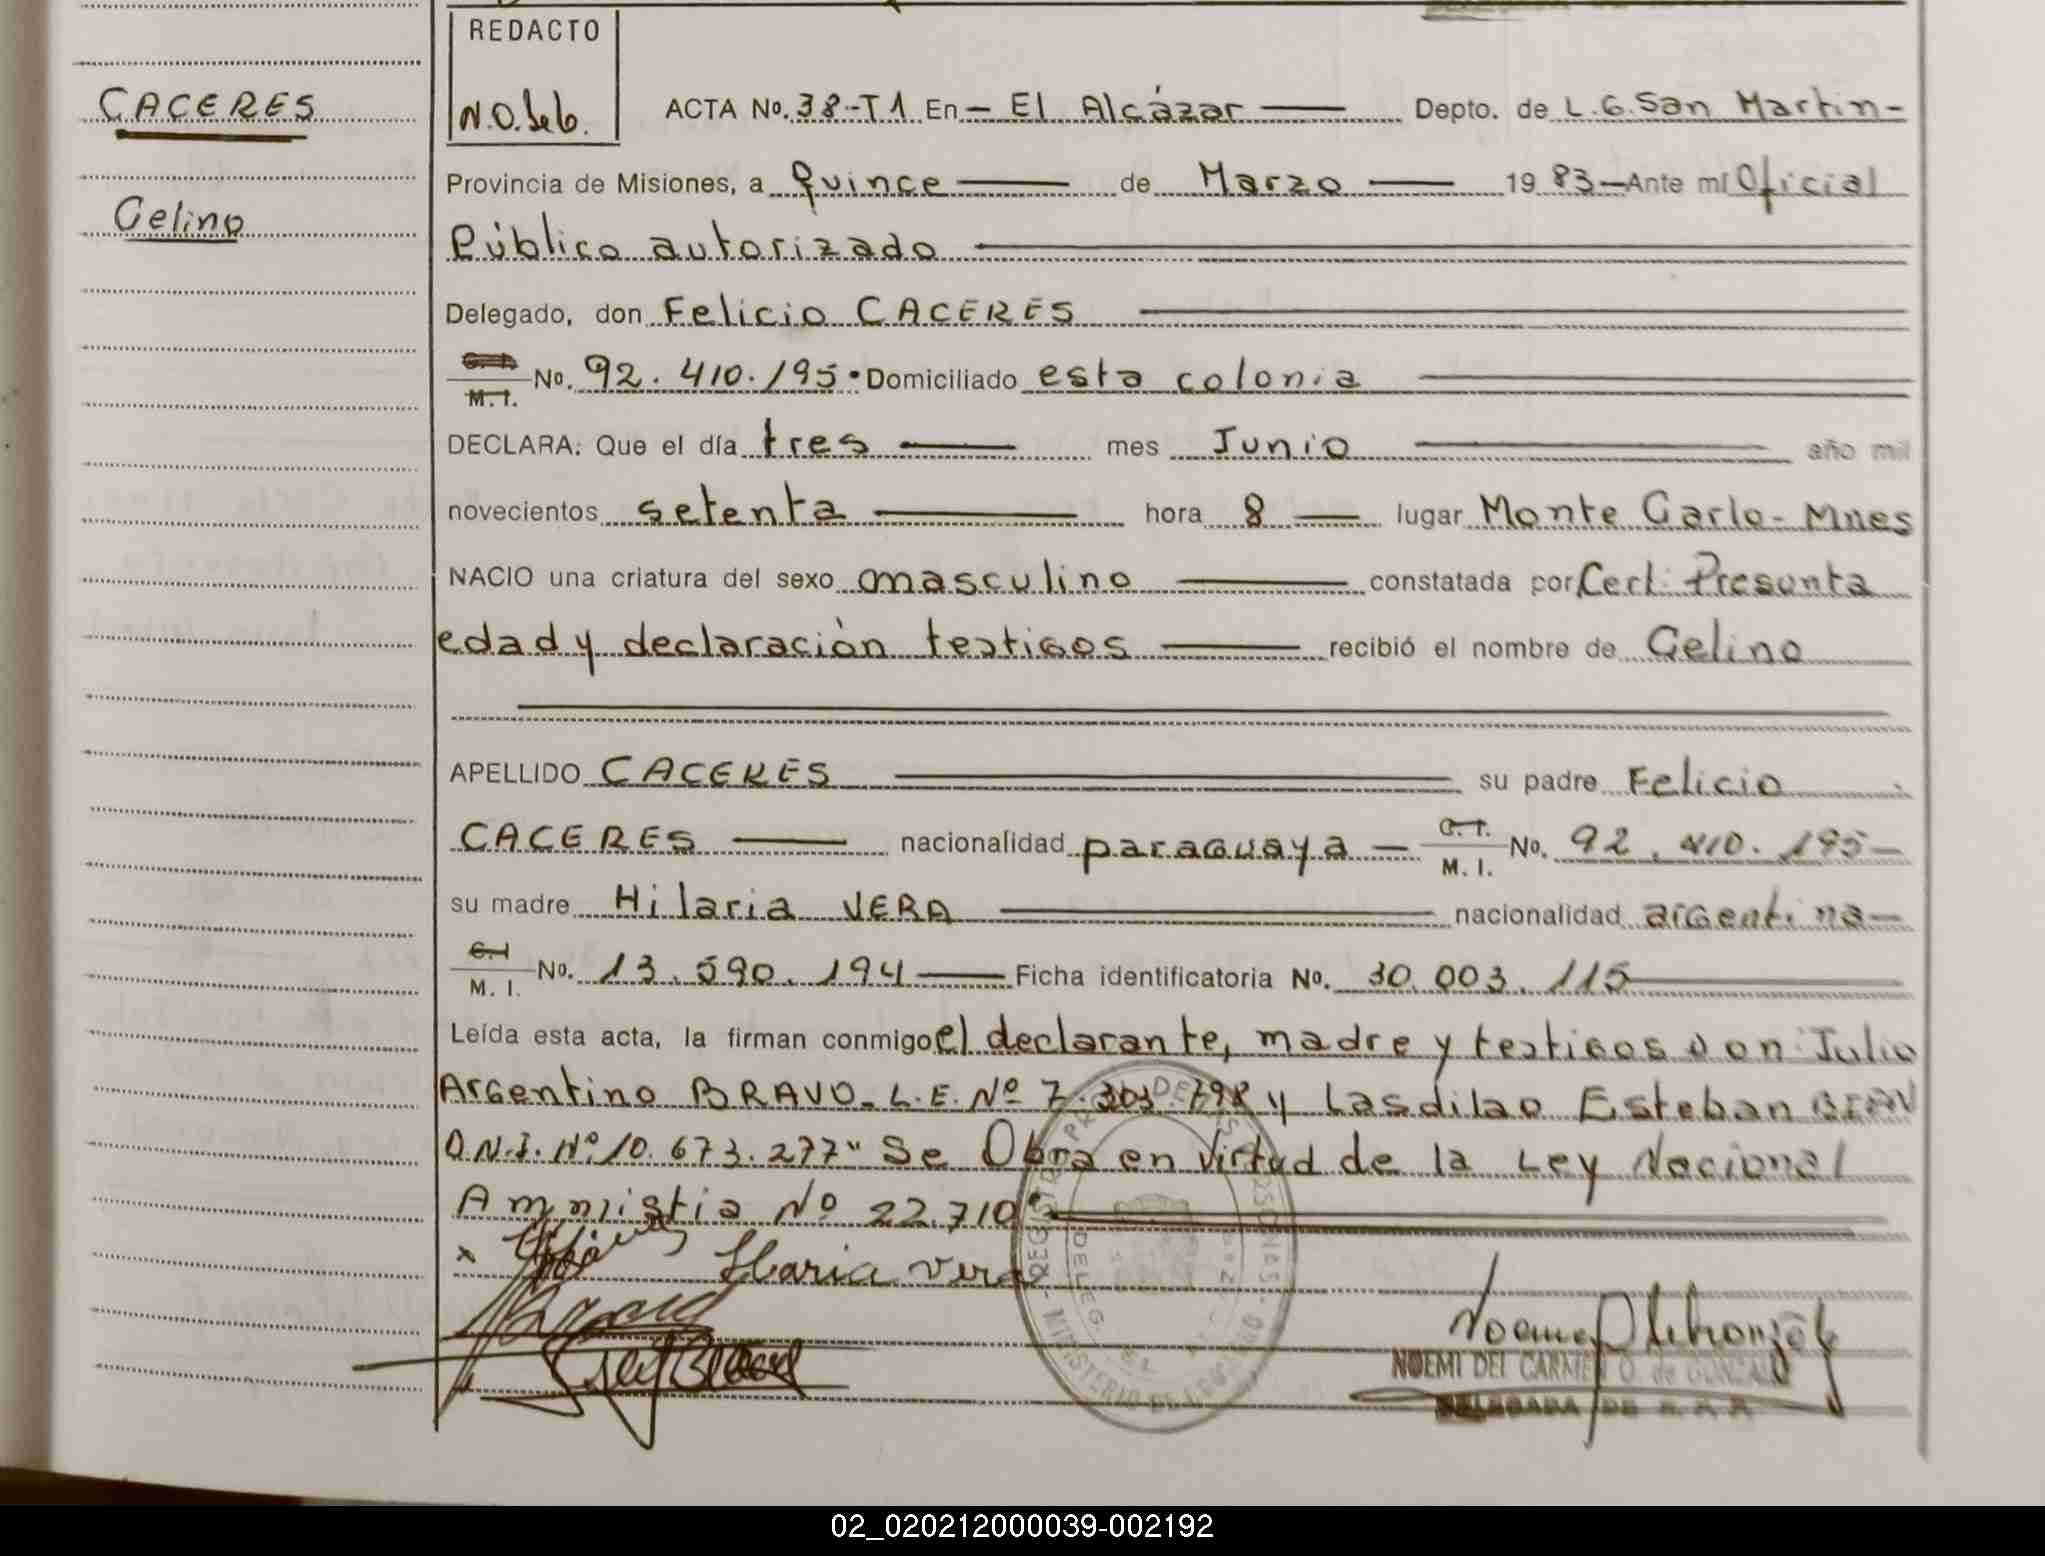 REDACTO
CACERES
N.O.deG. ACTA No. 38-T1 En - El Alcázar Depto. de L.G. San Martin-
Provincia de Misiones, a Quince de Marzo 19 83 - Ante mí Oficial
Celino
Público autorizado
Delegado, don Felicio CACERES
M. I. No. 92.410.195. Domiciliado esta colonia
DECLARA: Que el día tres mes Junio año mil
novecientos setenta hora 8 lugar Monte Carlo - Mnes
NACIO una criatura del sexo masculino constatada por Cert. Presunta
edad y declaración testigos recibió el nombre de Celino
APELLIDO CACERES su padre Felicio
CACERES nacionalidad paraguaya - C. I. M. I. No. 92.410.195-
su madre Hilaria VERA nacionalidad argentina-
C. I. M. I. No. 13.590.194 Ficha identificatoria No. 30.003.115
Leída esta acta, la firman conmigo el declarante, madre y testigos don Julio
Argentino BRAVO. L.E. Nº 7.303.798 y Lasdilao Esteban
D.N.I. Nº 10.673.277" Se Obra en virtud de la Ley Nacional
Amnistia Nº 22.710"
x Ilaria vera
NOEMI DEL CARMEN O. de GONZALEZ
DELEGADA DE
02_020212000039-002192